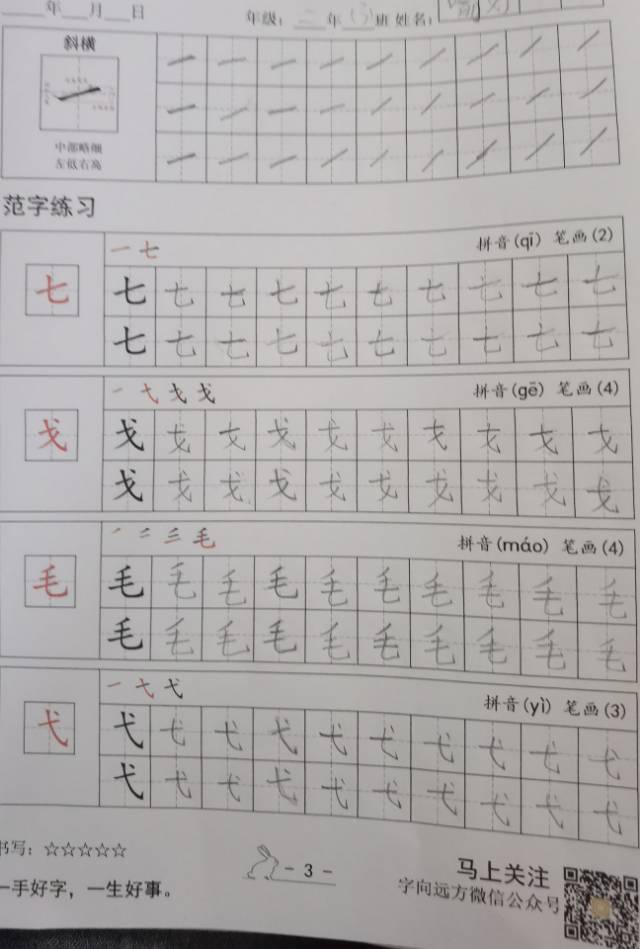 年 月 日 年级：二年( )班 姓名：
斜横
中部略细
左低右高
范字练习
一 七 拼音(qī) 笔画(2)
七 七 七 七 七 七 七 七 七 七 七
七 七 七 七 七 七 七 七 七 七
一 弋 戈 戈 拼音(gē) 笔画(4)
戈 戈 戈 戈 戈 戈 戈 戈 戈 戈 戈
戈 戈 戈 戈 戈 戈 戈 戈 戈 戈
毛 拼音(máo) 笔画(4)
毛 毛 毛 毛 毛 毛 毛 毛 毛 毛 毛
毛 毛 毛 毛 毛 毛 毛 毛 毛 毛
一 弋 弋 拼音(yì) 笔画(3)
弋 弋 弋 弋 弋 弋 弋 弋 弋 弋 弋
弋 弋 弋 弋 弋 弋 弋 弋 弋 弋
书写：☆☆☆☆☆
一手好字，一生好事。
- 3 -
马上关注
字向远方微信公众号